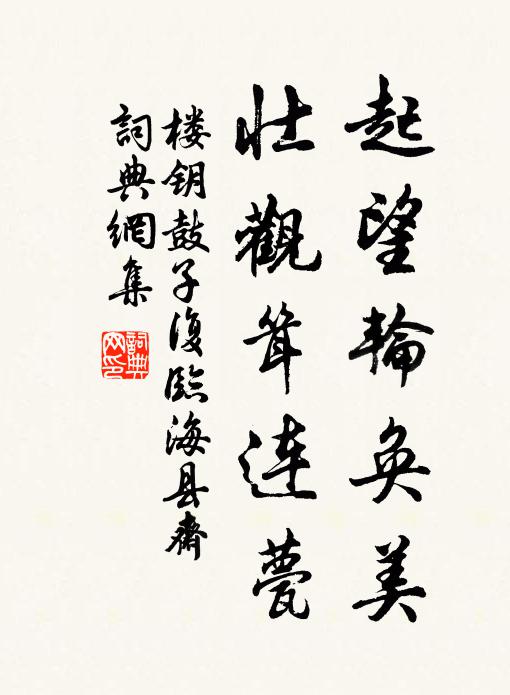 起望輪奐美
壮觀聳連甍
楼钥鼓子復臨海县齋
詞典網集
詞典
网印